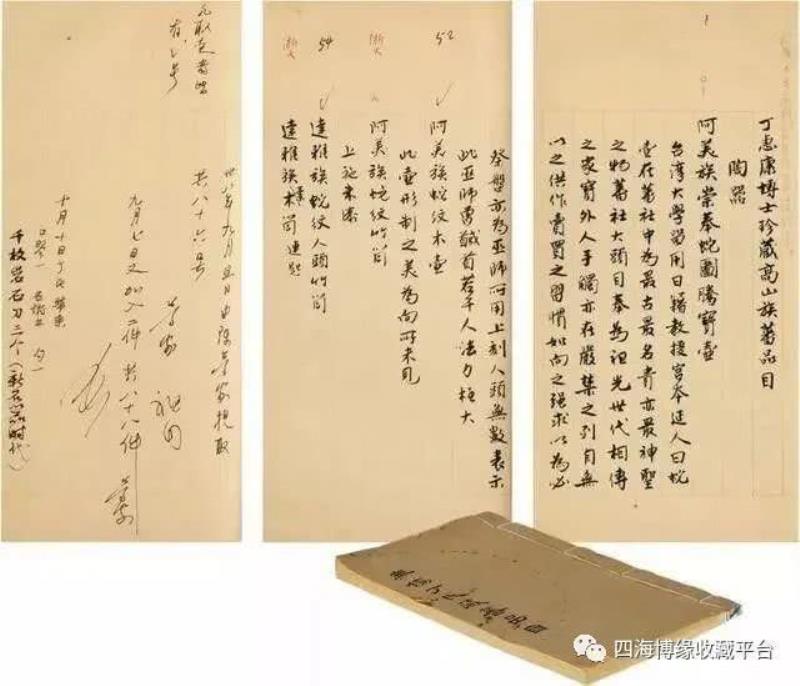 丁惠康博士珍藏高山族蕃品目
陶器
阿美族崇奉蛇圖騰寶壺
台湾大學留用日籍教授宫本延人曰蛇
壺在蕃社中為最古最名貴亦最神聖
之物蕃社大頭目奉為祖先世代相傳
之家寶外人手觸亦在嚴禁之列自無
以之供作賣買之習慣如向之强求以為必
祭盤亦為巫師所用上刻人頭無數表示
此巫師曾馘首若干人法力極大
52
阿美族蛇纹木壺
此壺形制之美為向所未見
浙大
阿美族蛇纹竹筒
上施朱漆
54
達雅族蛇纹人頭竹筒
浙大
達雅族木筒連匙
卅八年九月五日由陈家提取
共八十六号
九月七日又加入二件共八十八件
十月十日丁氏
口琴一
千枚岩石刀三个(新石器时代)
四海博缘收藏平台